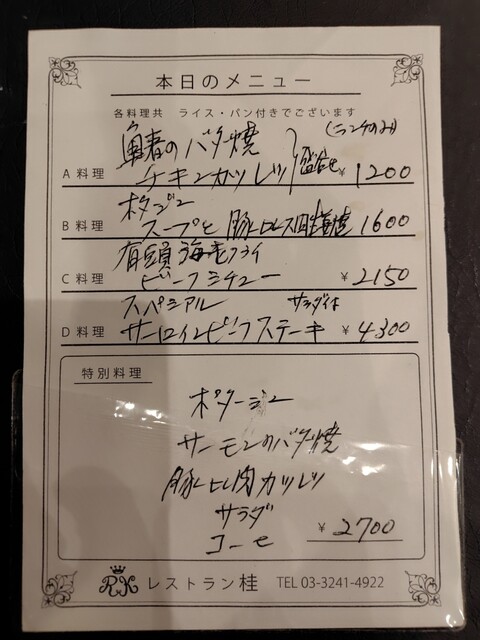 本日のメニュー
各料理共 ライス・パン付きでございます
のバタ焼 (ランチのみ)
A料理 チキンカツレツ 盛合せ ¥1200
ポタジュ
B料理 スープと豚ヒレ 1600
有頭海老フライ
C料理 ビーフシチュー ¥2150
スペシャル サラダ付
D料理 サーロインビーフステーキ ¥4300
特別料理
ポタージュ
サーモンのバタ焼
豚ヒレ肉カツレツ
サラダ
コーヒ ¥2700
RK レストラン 桂 TEL 03-3241-4922